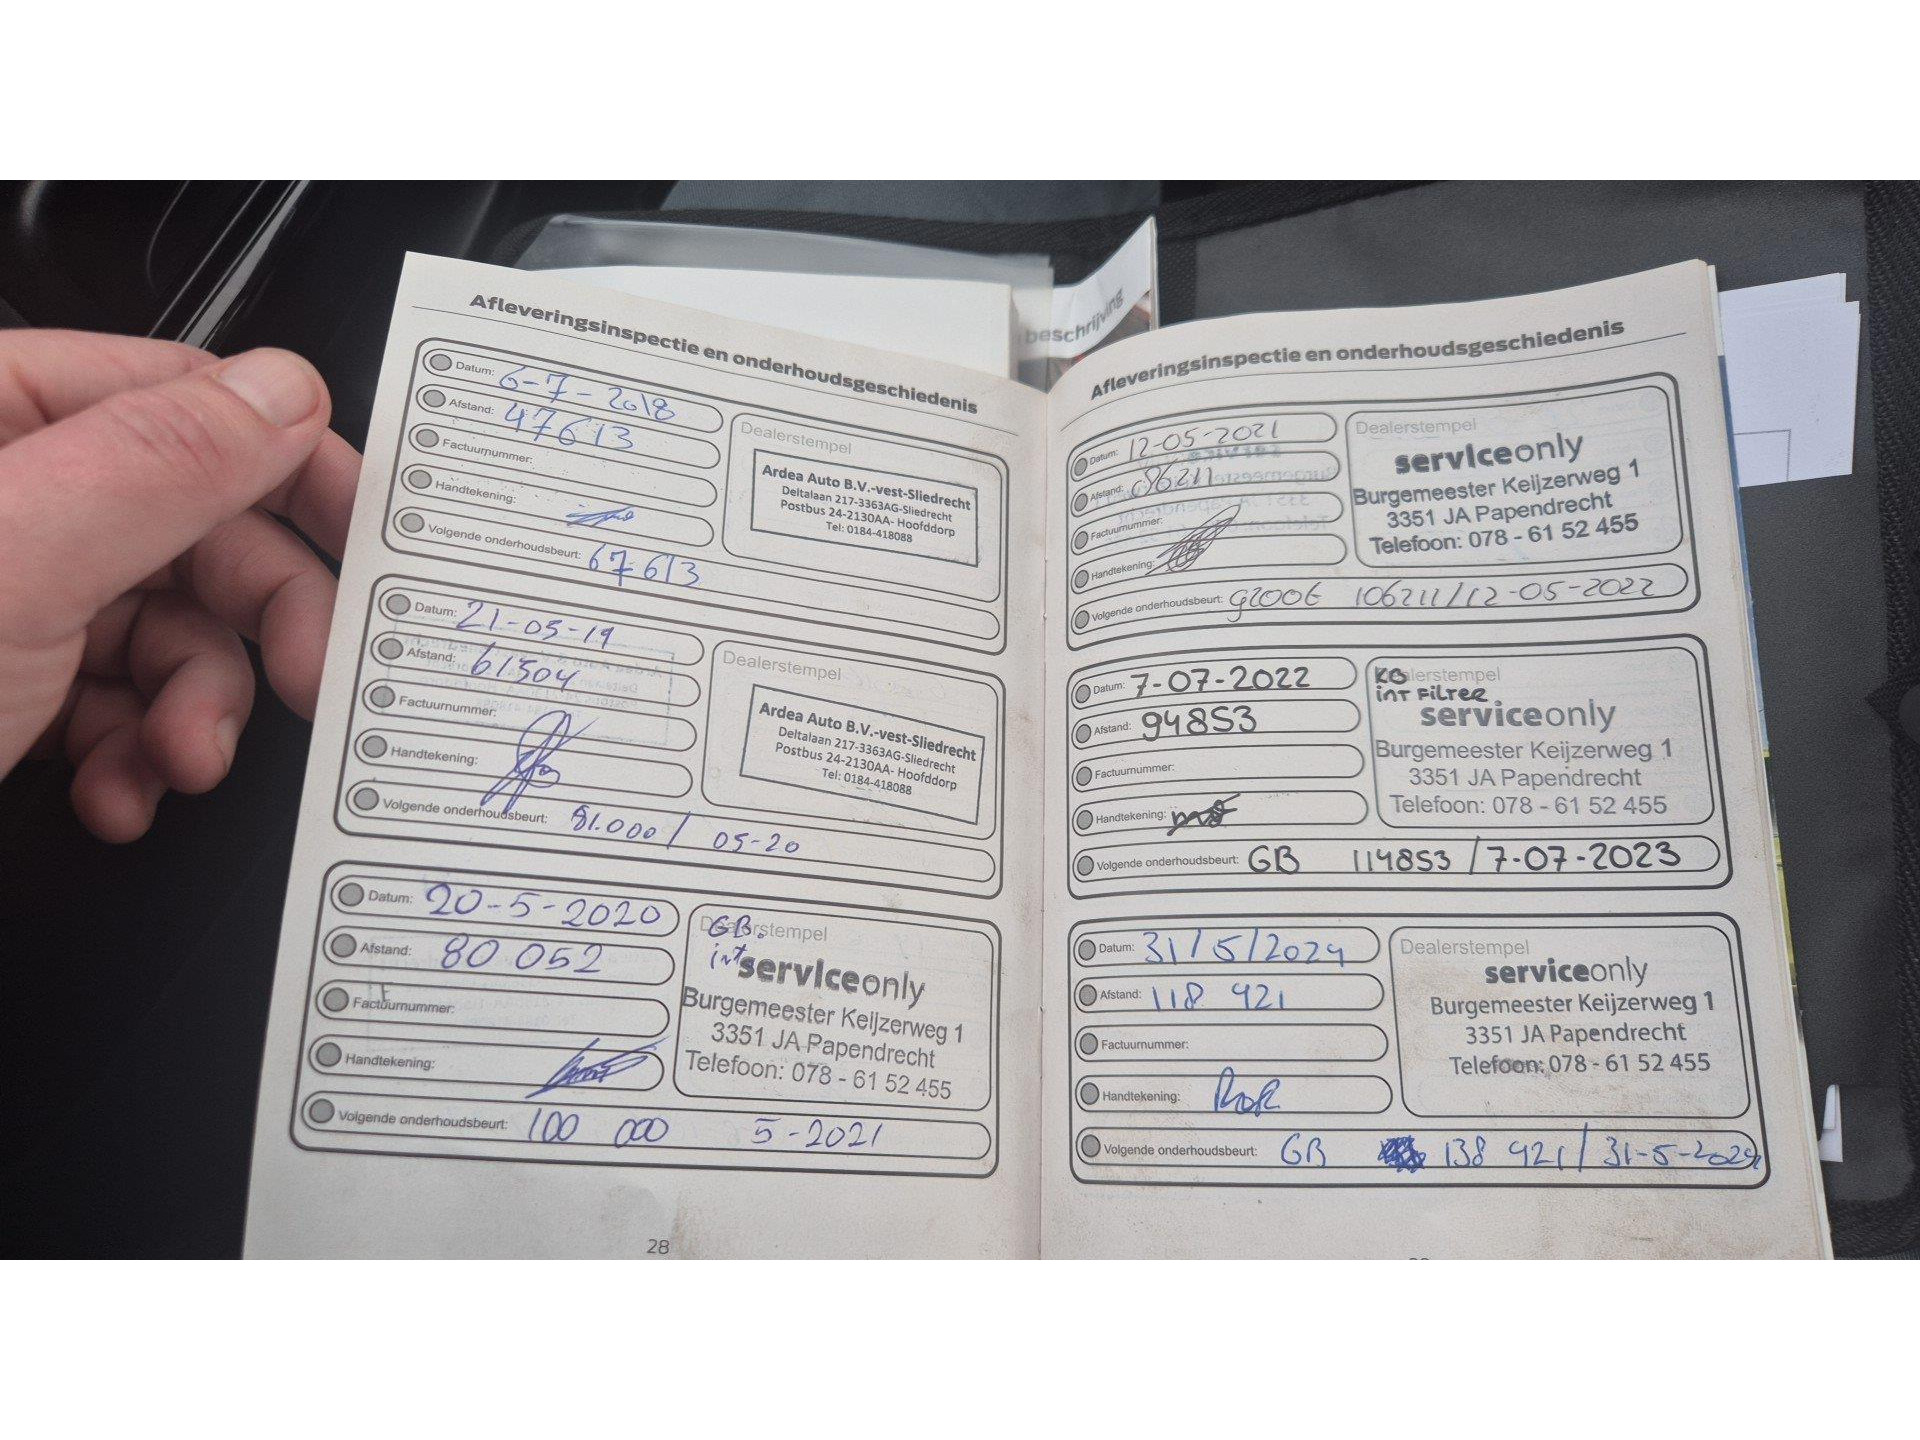 beschrijving
Afleveringsinspectie en onderhoudsgeschiedenis
Datum: 6-7-2018
Afstand: 47613
Factuurnummer:
Handtekening:
Volgende onderhoudsbeurt: 67613
Dealerstempel
Ardea Auto B.V.-vest-Sliedrecht
Deltalaan 217-3363AG-Sliedrecht
Postbus 24-2130AA- Hoofddorp
Tel: 0184-418088
Datum: 21-05-19
Afstand: 61504
Factuurnummer:
Handtekening:
Volgende onderhoudsbeurt: 81.000 / 05-20
Dealerstempel
Ardea Auto B.V.-vest-Sliedrecht
Deltalaan 217-3363AG-Sliedrecht
Postbus 24-2130AA- Hoofddorp
Tel: 0184-418088
Datum: 20-5-2020
Afstand: 80 052
Factuurnummer:
Handtekening:
Volgende onderhoudsbeurt: 100 000 5-2021
Dealerstempel
GB.
int
serviceonly
Burgemeester Keijzerweg 1
3351 JA Papendrecht
Telefoon: 078 - 61 52 455
28
Afleveringsinspectie en onderhoudsgeschiedenis
Datum: 12-05-2021
Afstand: 86211
Factuurnummer:
Handtekening:
Volgende onderhoudsbeurt: GROOTE 106211/12-05-2022
Dealerstempel
serviceonly
Burgemeester Keijzerweg 1
3351 JA Papendrecht
Telefoon: 078 - 61 52 455
Datum: 7-07-2022
Afstand: 94853
Factuurnummer:
Handtekening:
Volgende onderhoudsbeurt: GB 114853 / 7-07-2023
Dealerstempel
KB
int Filter
serviceonly
Burgemeester Keijzerweg 1
3351 JA Papendrecht
Telefoon: 078 - 61 52 455
Datum: 31/5/2024
Afstand: 118 421
Factuurnummer:
Handtekening:
Volgende onderhoudsbeurt: GB 138 421 / 31-5-2024
Dealerstempel
serviceonly
Burgemeester Keijzerweg 1
3351 JA Papendrecht
Telefoon: 078 - 61 52 455